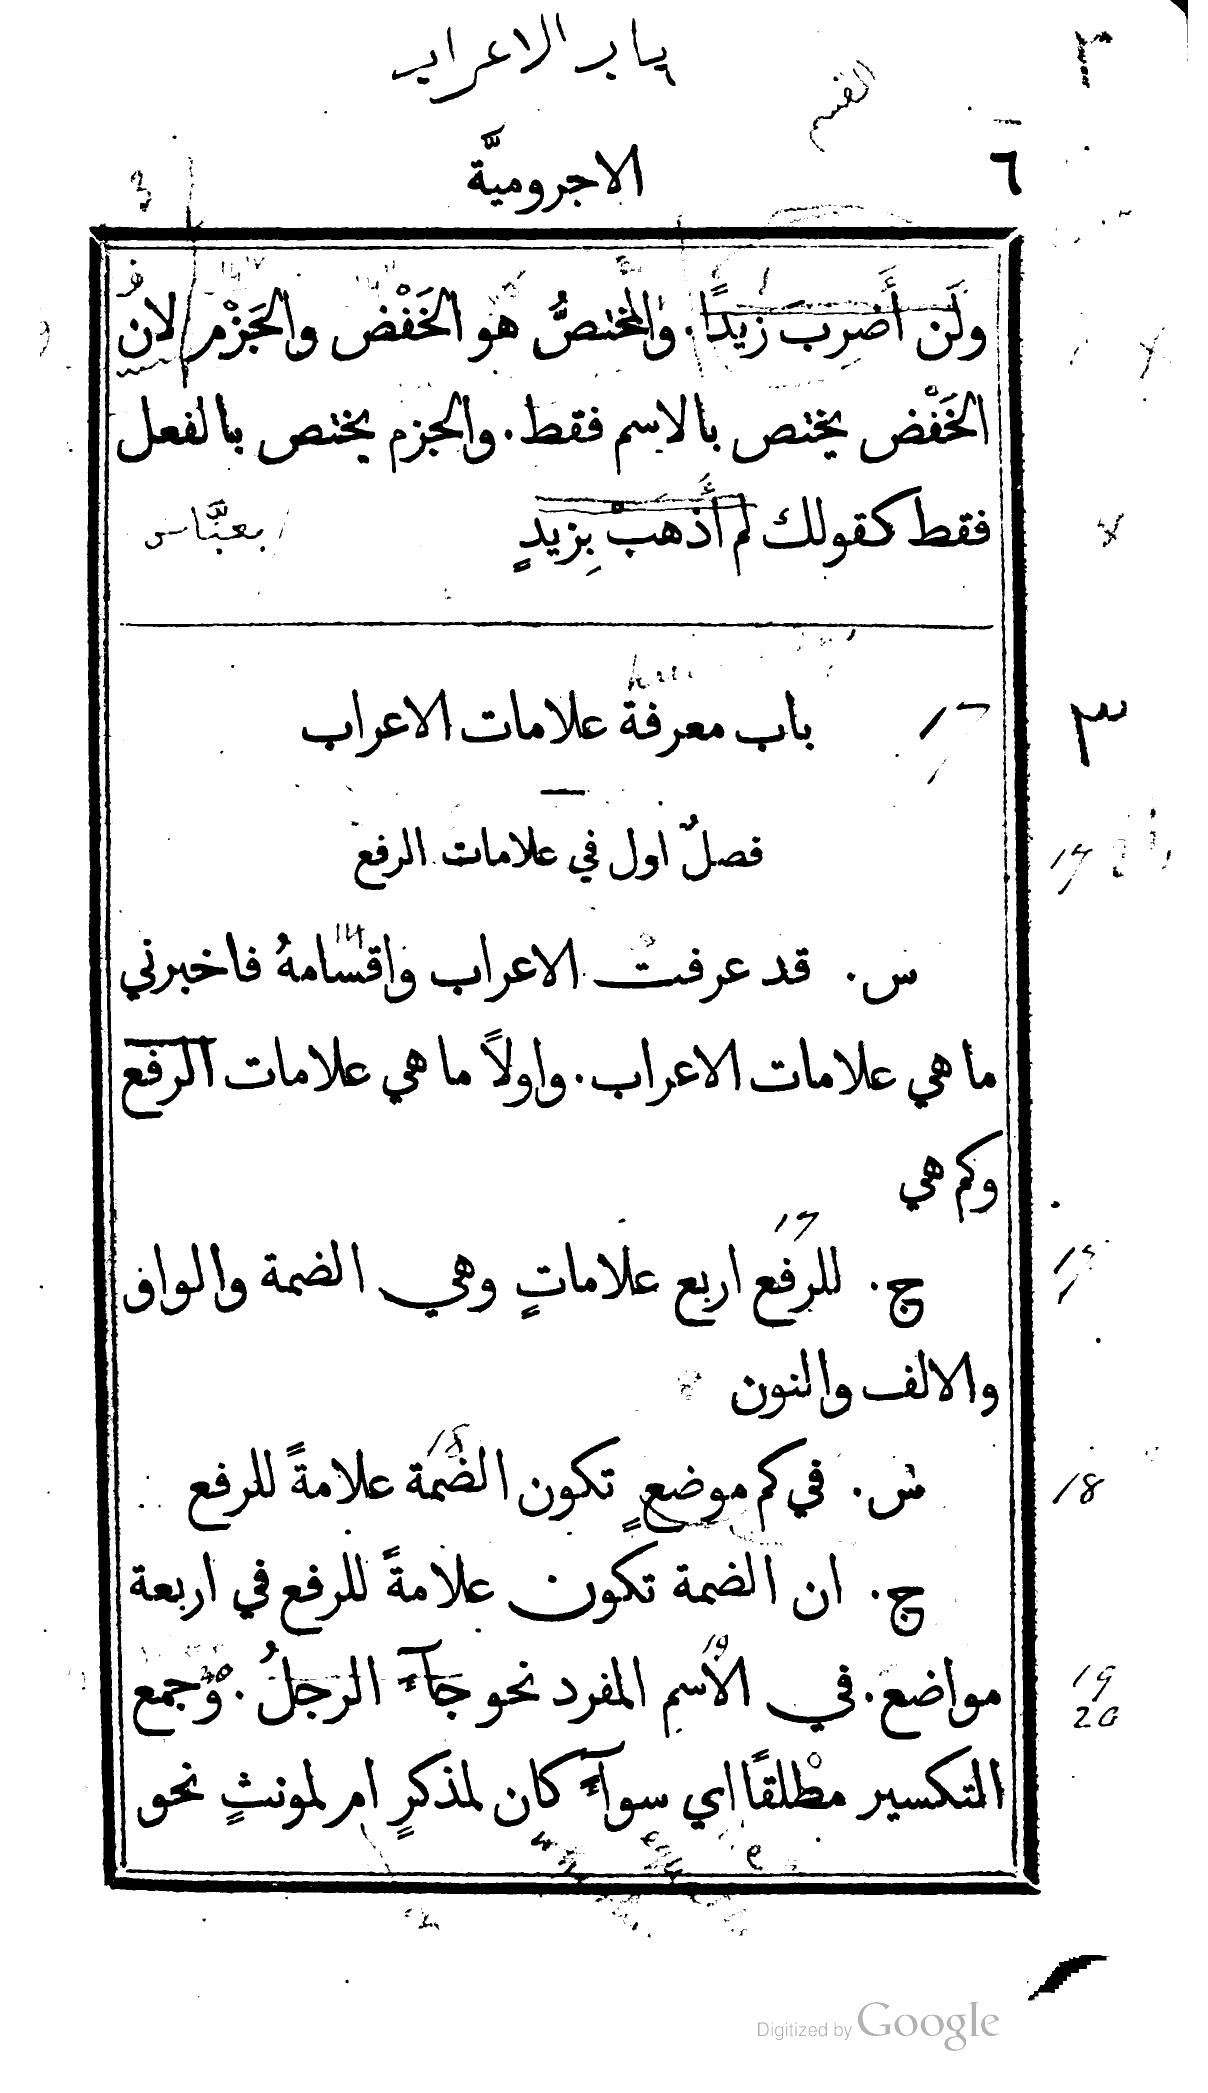 باب الاعراب
٣
القسم
الاجروميَّة
٦
3
ولَن أَضرِبَ زيدًا. والمختصُّ هو الخَفْض والجَزْم لانَّ
الخَفْض يختص بالاسم فقط. والجزم يختص بالفعل
فقط كقولك لم أَذهبْ بِزيدٍ
باب معرفة علامات الاعراب
17
٣
فصلٌ اول في علامات الرفع
17
س. قد عرفت الاعراب واقسامهُ فاخبرني
ما هي علامات الاعراب. واولاً ما هي علامات الرفع
وكم هي
17
ج. للرفع اربع علاماتٍ وهي الضمة والواو
17
والالف والنون
18
س. في كم موضعٍ تكون الضمة علامةً للرفع
18
ج. ان الضمة تكون علامةً للرفع في اربعة
19
مواضع. في الاسم المفرد نحو جآءَ الرجلُ. وجمع
19
20
التكسير مطلقًا اي سوآءً كان لمذكرٍ ام لمونثٍ نحو
Digitized by Google